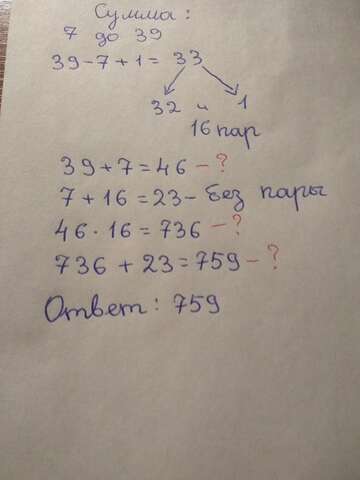 Сумма:
7 до 39
39-7+1= 33
32 и 1
16 пар
39+7=46 -?
7+16=23- без пары
46·16=736 -?
736+23=759-?
Ответ: 759